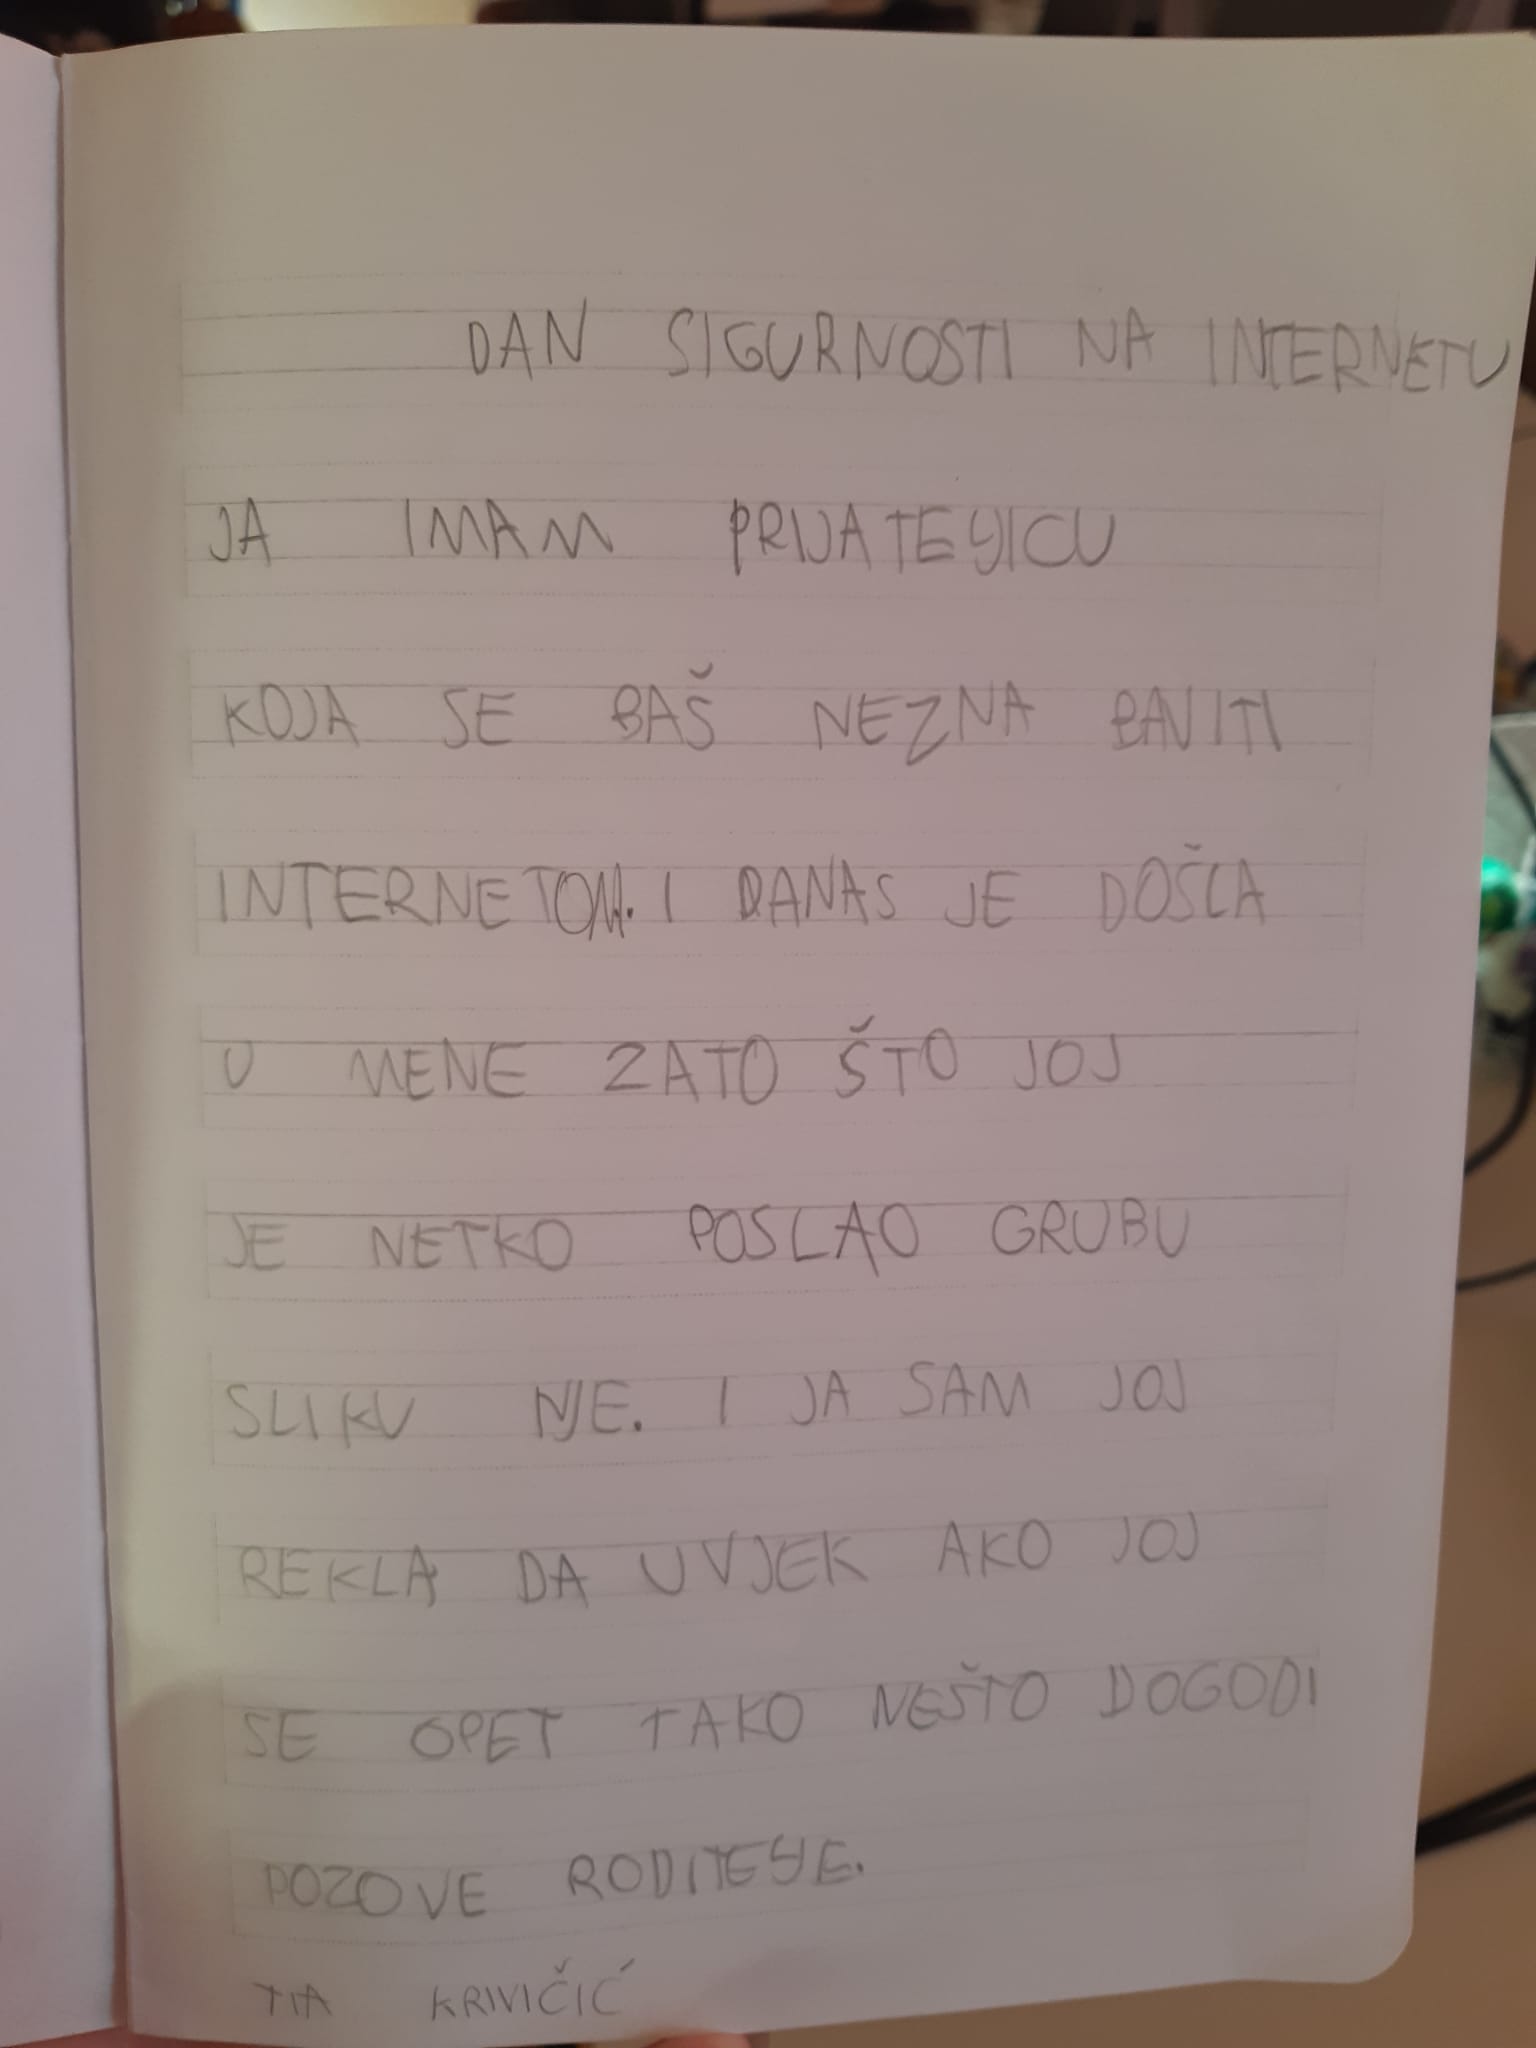 DAN SIGURNOSTI NA INTERNETU
JA IMAM PRIJATELJICU
KOJA SE BAŠ NEZNA BAVITI
INTERNETOM. I DANAS JE DOŠLA
U MENE ZATO ŠTO JOJ
JE NETKO POSLAO GRUBU
SLIKU NJE. I JA SAM JOJ
REKLA DA UVJEK AKO JOJ
SE OPET TAKO NEŠTO DOGODI
POZOVE RODITELJE.
TIA KRIVIČIĆ